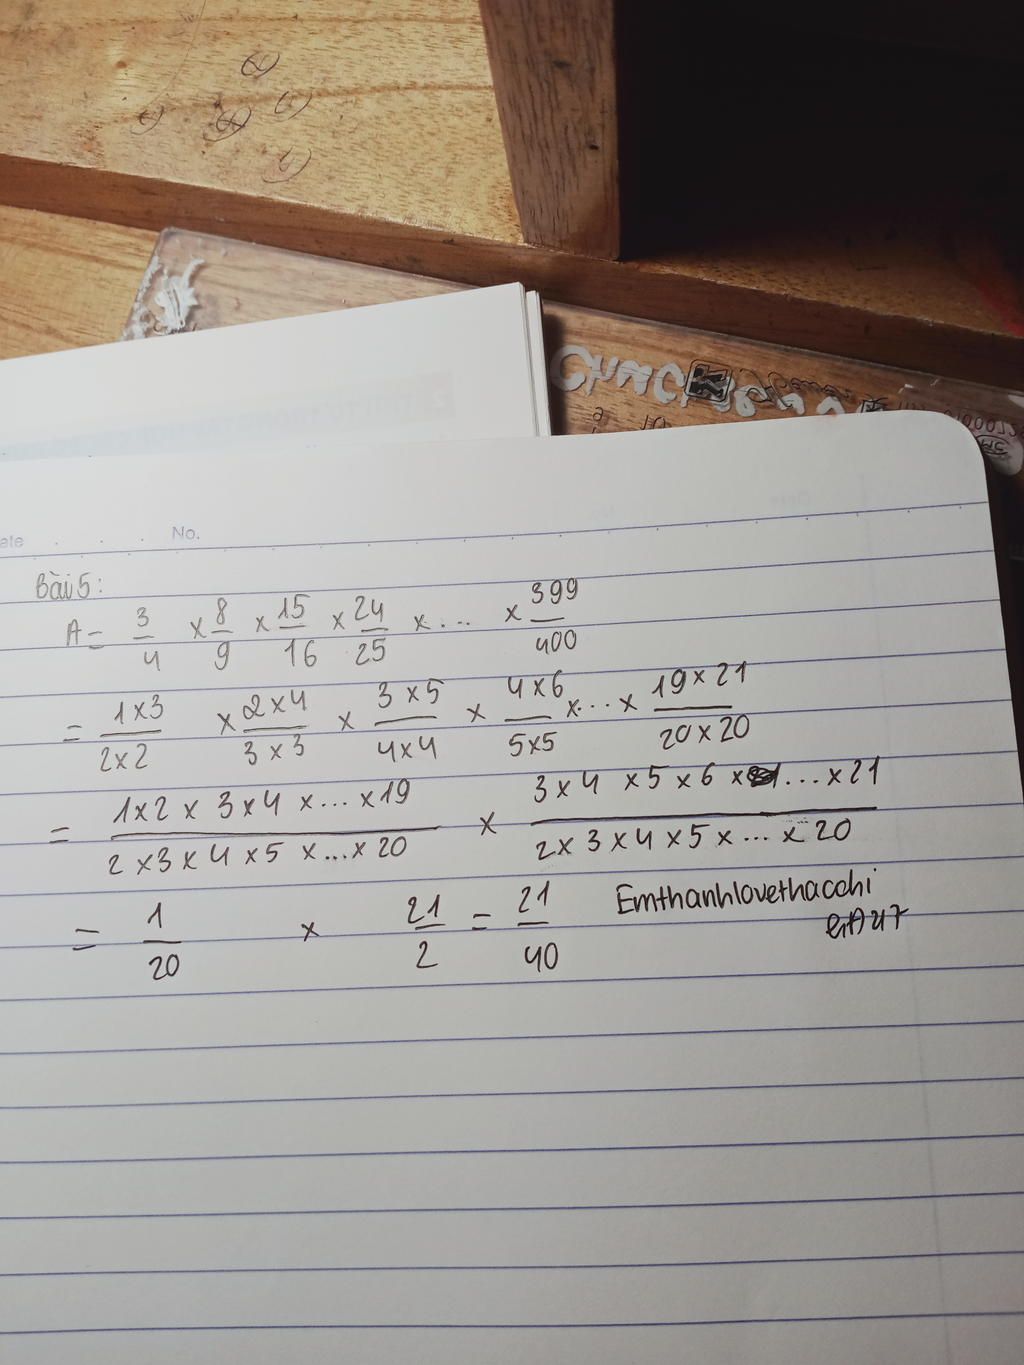 ate . . . . No.
Bài 5:
A = 3/4 × 8/9 × 15/16 × 24/25 × ... × 399/400
= 1×3/2×2 × 2×4/3×3 × 3×5/4×4 × 4×6/5×5 ×...× 19×21/20×20
= 1×2×3×4×...×19/2×3×4×5×...×20 × 3×4×5×6×...×21/2×3×4×5×...×20
= 1/20 × 21/2 = 21/40
Emthanhlovethacchi